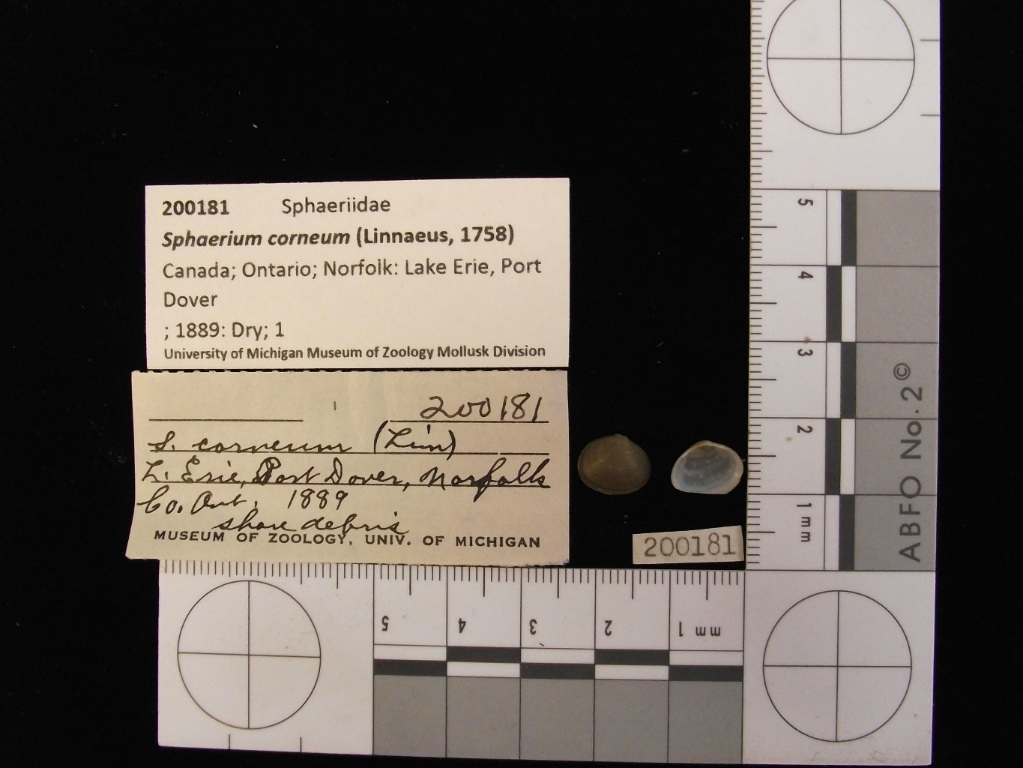 200181 Sphaeriidae
Sphaerium corneum (Linnaeus, 1758)
Canada; Ontario; Norfolk: Lake Erie, Port
Dover
; 1889: Dry; 1
University of Michigan Museum of Zoology Mollusk Division
200181
S. corneum (Lin)
L. Erie, Port Dover, Norfolk
Co. Ont. 1889
shore debris
MUSEUM OF ZOOLOGY, UNIV. OF MICHIGAN
200181
5
4
3
2
1 mm
ABFO No. 2 ©
5 4 3 2 1 mm